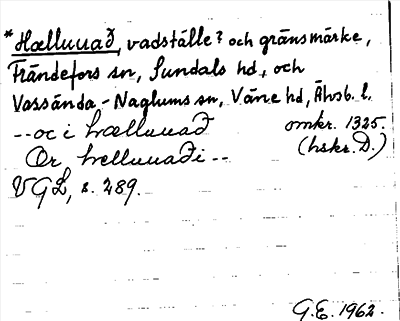 *Hælluuað, vadställe? och gränsmärke,
Frändefors sn, Sundals hd, och
Vassända-Naglums sn, Väne hd, Älvsb. l.
--oc i hælluuað omkr. 1325.
Or helluuaði-- (hskr. D.)
VGL, s. 289.
G.E. 1962.